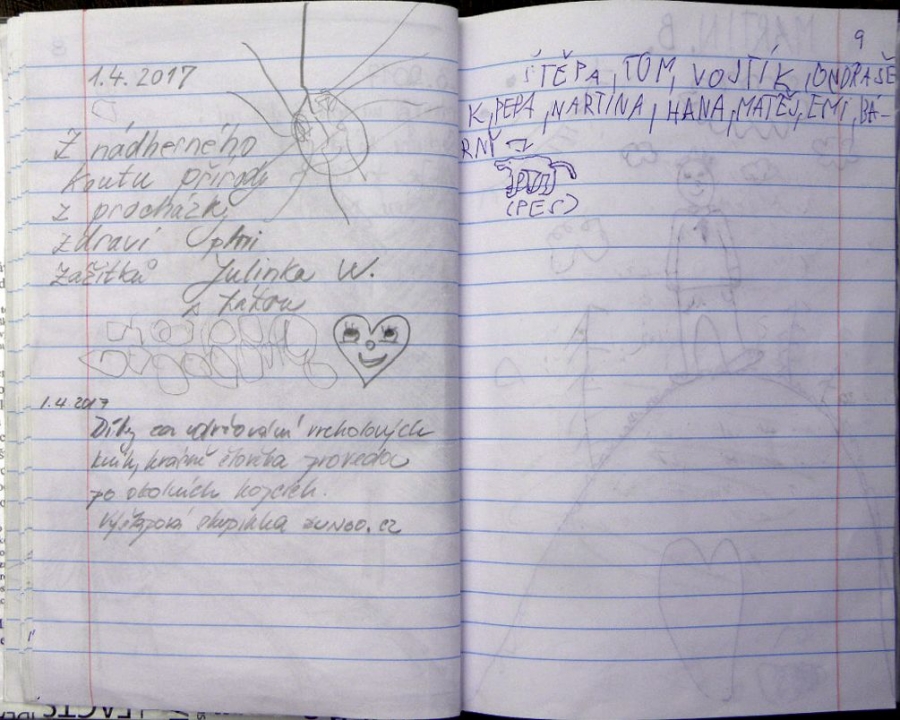 1.4.2017
Z nádherného
koutu přírody
z procházky
zdraví Oplni
zážitků Julinka W.
s tátou
1.4.2017
Díky za udržování vrcholových
knih, krásně člověka provedou
po okolních kopcích.
Výšlapová skupinka
9
ŠTĚPA, TOM, VOJTÍK, ONDRAŠE
K, PEPA, MARTINA, HANA, MATĚJ, EMI, BÁ-
RNÝ
(PES)